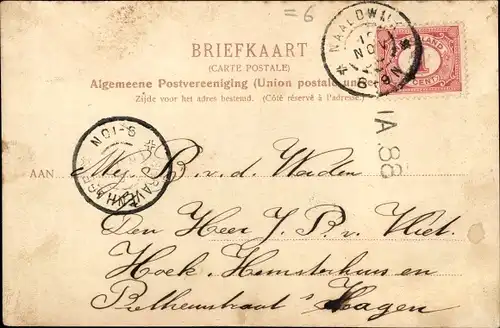 =6
NAALDWIJK
10 NOV
BRIEFKAART
(CARTE POSTALE)
Algemeene Postvereeniging (Union postale un
Zijde voor het adres bestemd. (Côté réservé à l'adresse.)
1
CENT
1A 88
'S GRAVENHAGE
8-10N
AAN Mej. B. v. d. Waden
Den Heer J. P. v. Vliet.
Hoek Hemsterhuis en
straat 's Hagen